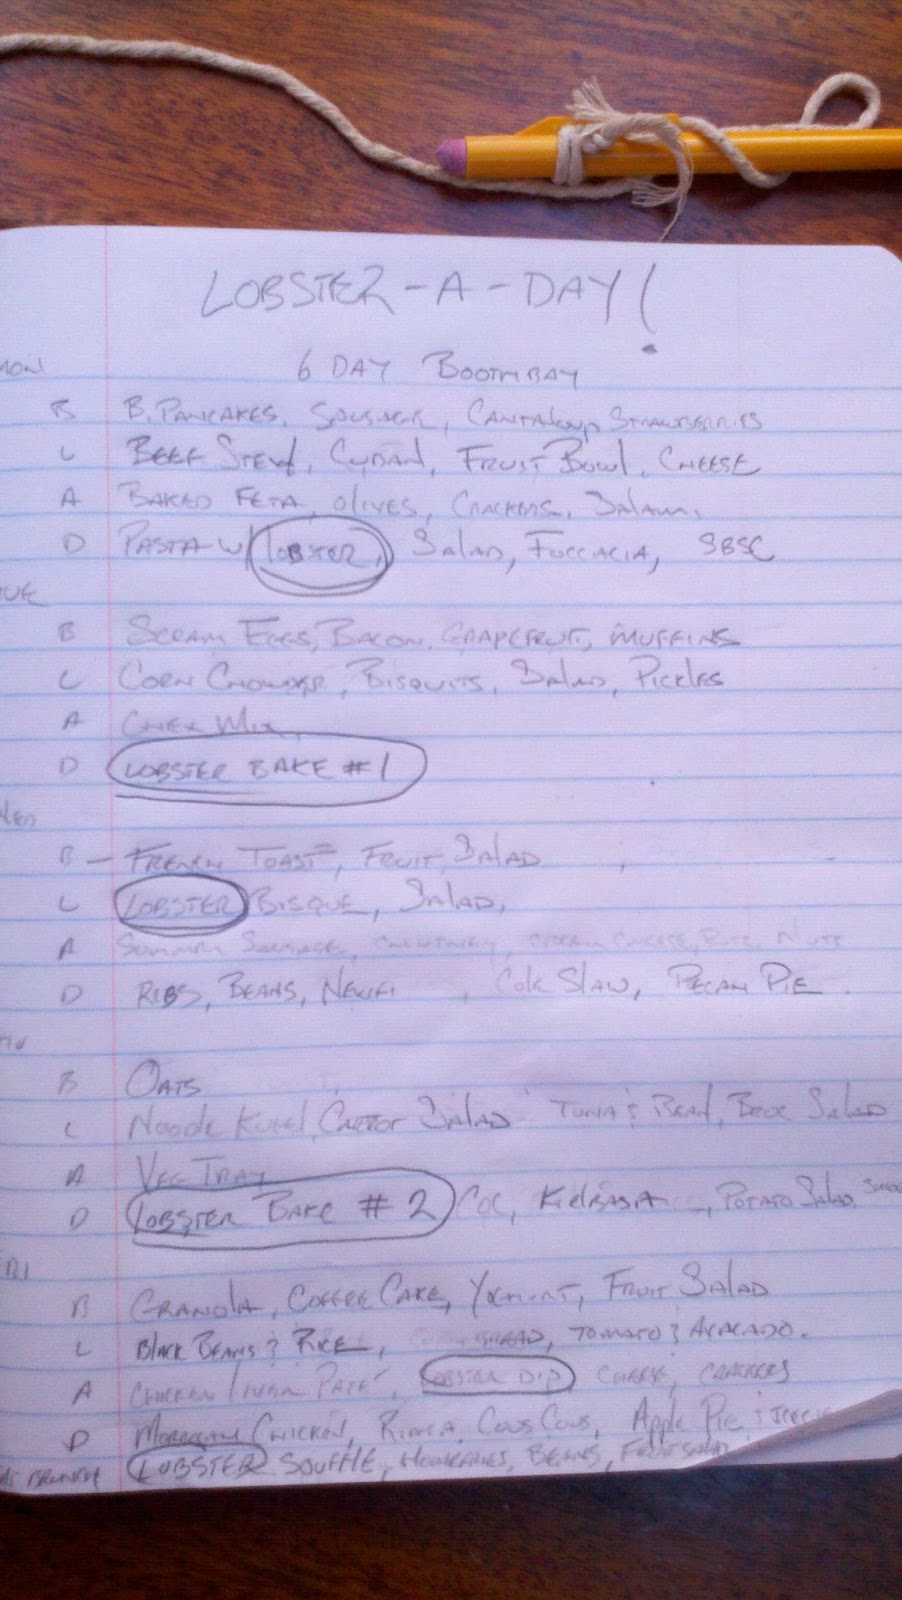 LOBSTER-A-DAY!
MON 6 DAY BOOTHBAY
B B. PANCAKES, SAUSAGE, CANTALOUP STRAWBERRIES
L BEEF STEW, CUBAN, FRUIT BOWL, CHEESE
A BAKED FETA, OLIVES, CRACKERS, SALAMI,
D PASTA W/ LOBSTER, SALAD, FOCCACIA, SBSC
TUE
B SCRAM EGGS, BACON, GRAPEFRUIT, MUFFINS
L CORN CHOWDER, BISQUITS, SALAD, PICKLES
A CHEX MIX
D LOBSTER BAKE #1
WED
B - FRENCH TOAST, FRUIT SALAD
L LOBSTER BISQUE, SALAD,
A SUMMER SAUSAGE, CHUTNEY, CREAM CHEESE, NUTS
D RIBS, BEANS, COLE SLAW, PECAN PIE
B OATS
L NOODLE KUGEL, CARROT SALAD TUNA & BEAN, BROC SALAD
A VEG TRAY
D LOBSTER BAKE #2 COC, KIELBASA, POTATO SALAD
FRI
B GRANOLA, COFFEE CAKE, YOGHURT, FRUIT SALAD
L BLACK BEANS & RICE, CORNBREAD, TOMATO & AVACADO.
A CHICKEN LIVER PATE, LOBSTER DIP CHEESE, CRACKERS
D MOROCCAN CHICKEN, RAITA, COUS COUS, APPLE PIE &
BRUNCH LOBSTER SOUFFLE, HOMEFRIES, BEANS, FRUIT SALAD